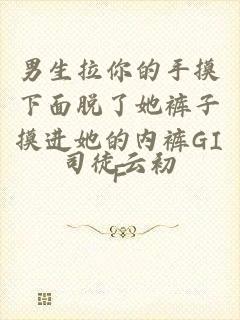 男生拉你的手摸
下面脱了她裤子
摸进她的内裤GI
F
司徒云初